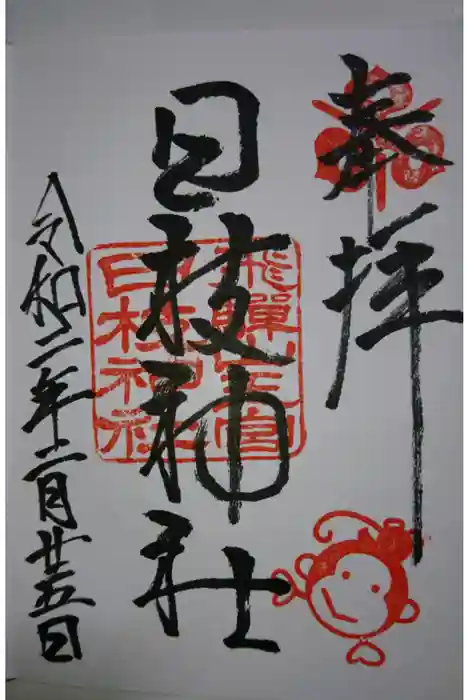 奉拝
飛騨山王宮
日枝神社
日枝神社
令和二年十二月廿五日